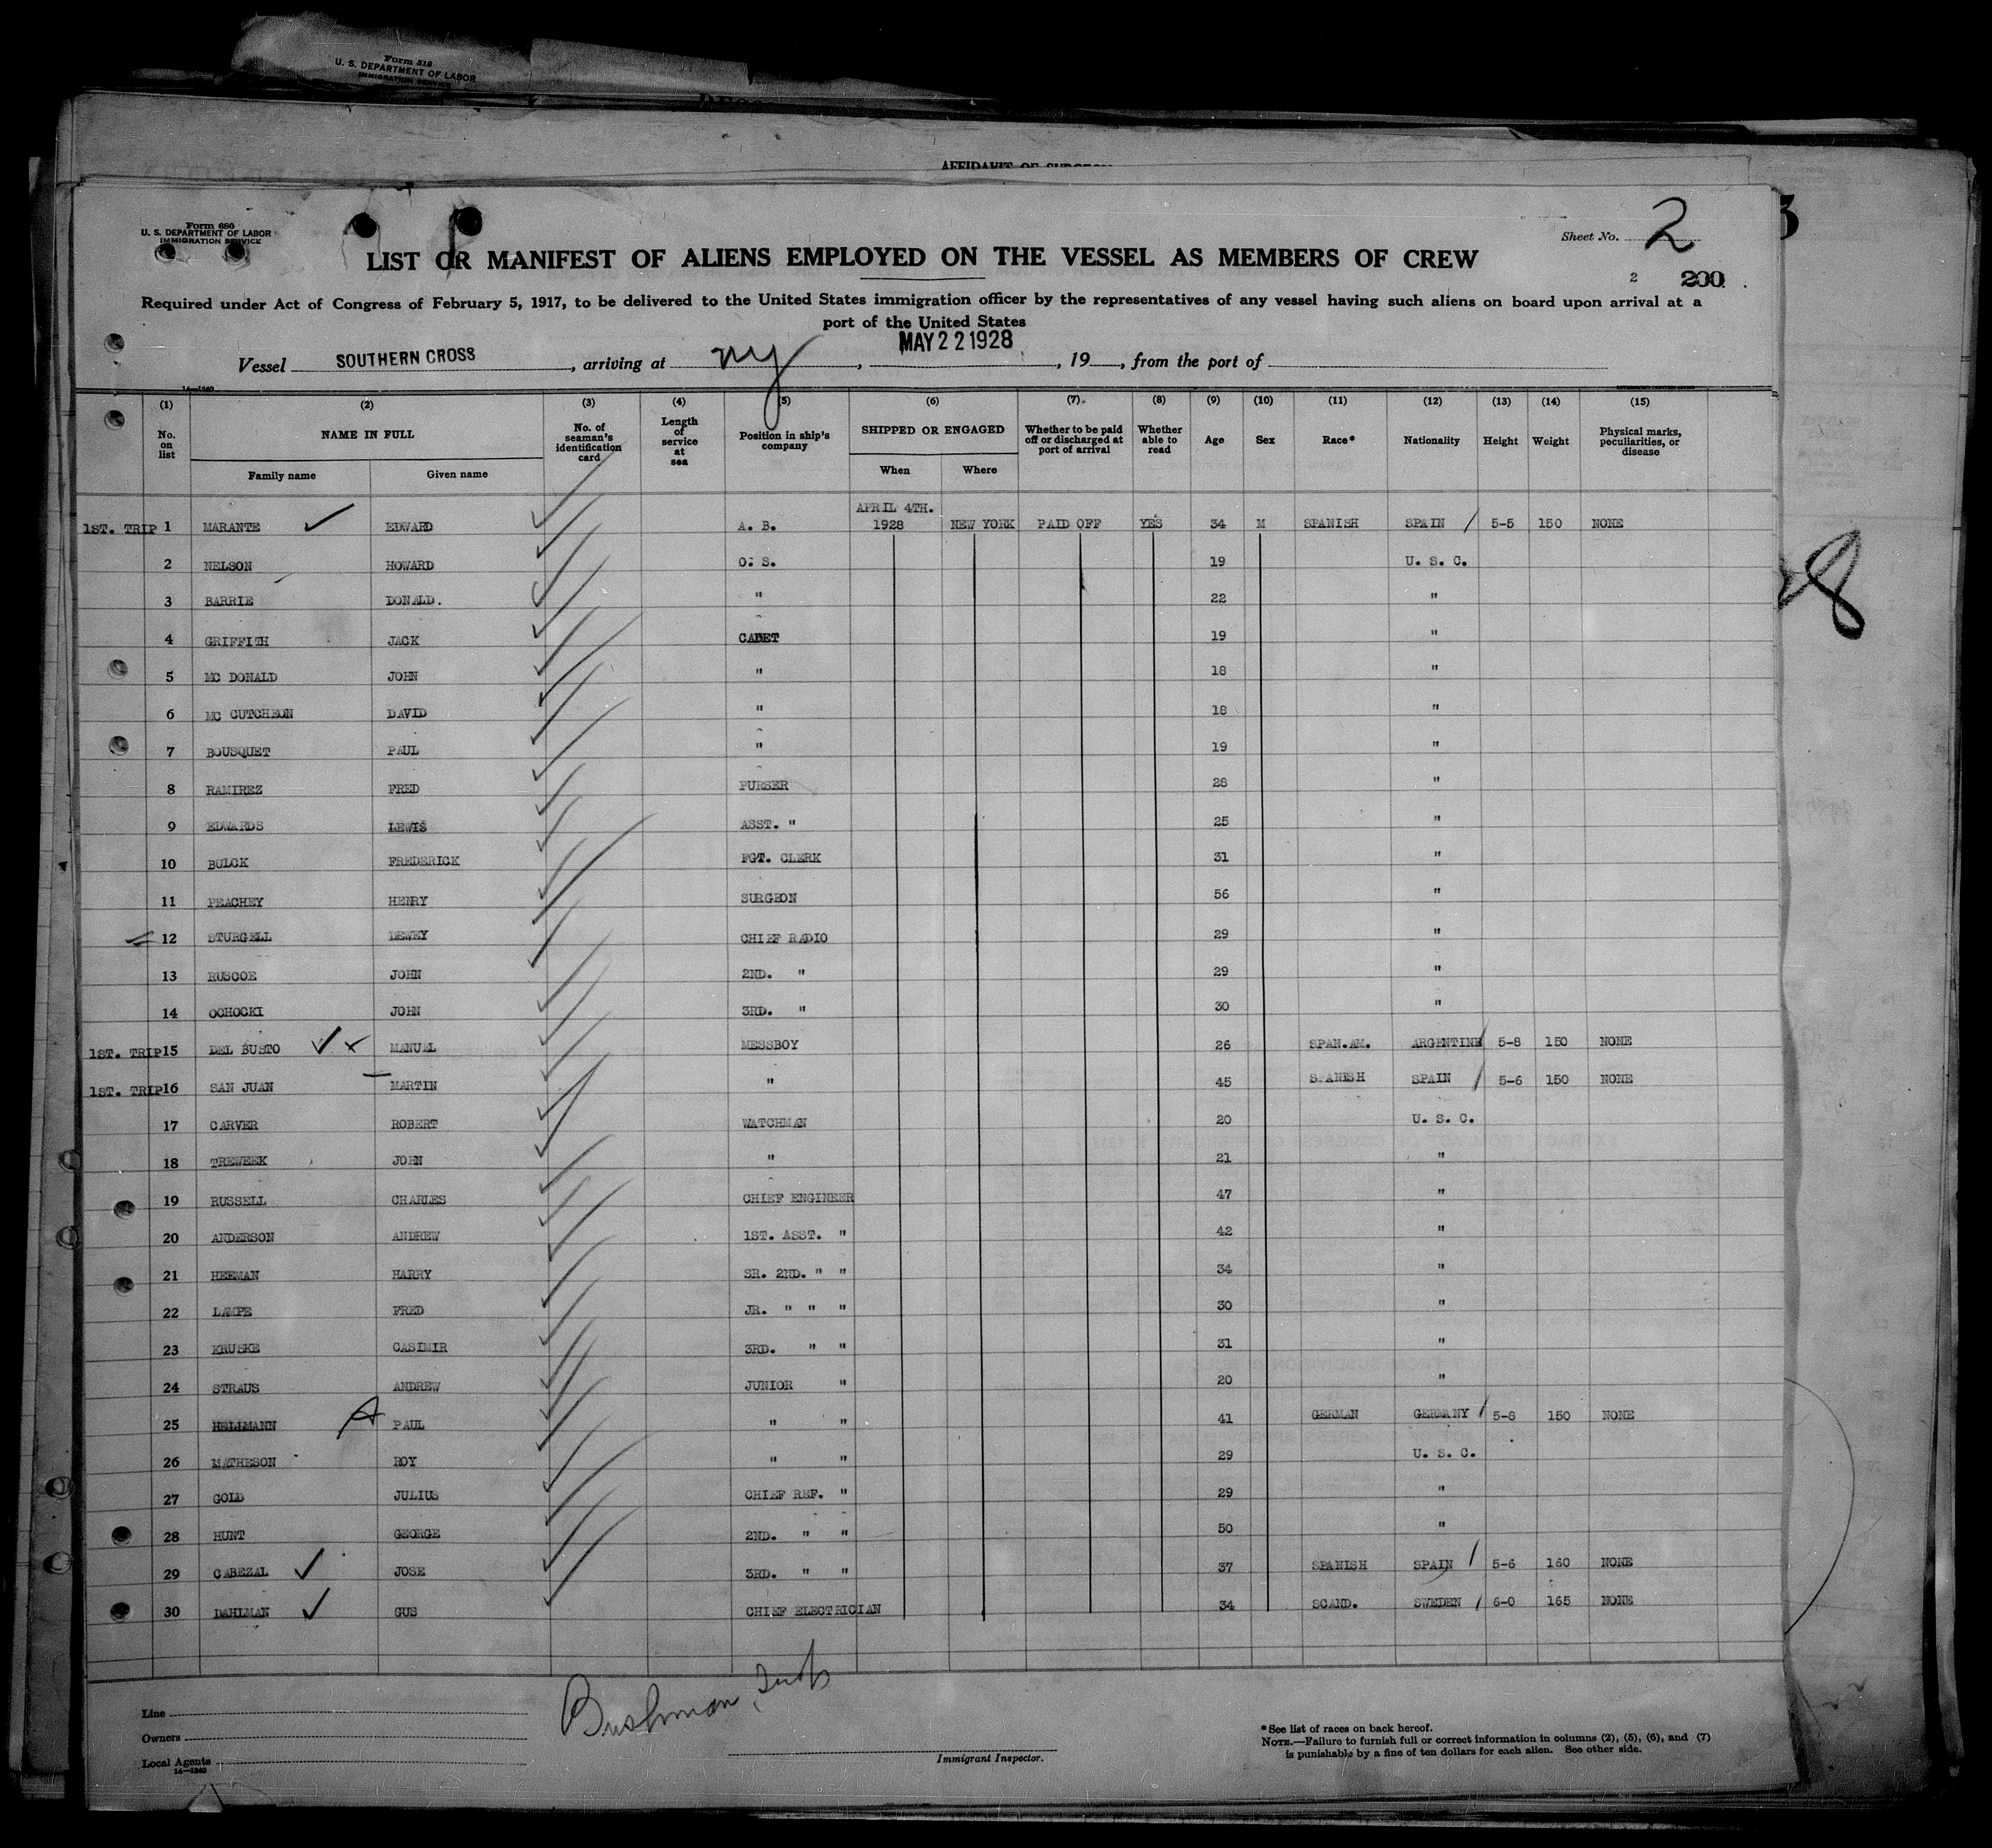 Form 518
U. S. DEPARTMENT OF LABOR
IMMIGRATION SERVICE
AFFIDAVIT OF SURGEON
Form 680
U. S. DEPARTMENT OF LABOR
IMMIGRATION SERVICE
Sheet No. 2
LIST OR MANIFEST OF ALIENS EMPLOYED ON THE VESSEL AS MEMBERS OF CREW
2 200
Required under Act of Congress of February 5, 1917, to be delivered to the United States immigration officer by the representatives of any vessel having such aliens on board upon arrival at a
port of the United States
Vessel SOUTHERN CROSS, arriving at ny, MAY 22 1928, 19 , from the port of
14—1240
(1) (2) (3) (4) (5) (6) (7) (8) (9) (10) (11) (12) (13) (14) (15)
No. on list NAME IN FULL No. of seaman's identification card Length of service at sea Position in ship's company SHIPPED OR ENGAGED Whether to be paid off or discharged at port of arrival Whether able to read Age Sex Race* Nationality Height Weight Physical marks, peculiarities, or disease
Family name Given name When Where
1ST. TRIP 1 MARANTE EDWARD A. B. APRIL 4TH. 1928 NEW YORK PAID OFF YES 34 M SPANISH SPAIN 5-5 150 NONE
2 NELSON HOWARD O. S. 19 U. S. C.
3 BARRIE DONALD. " 22 "
4 GRIFFITH JACK CADET 19 "
5 MC DONALD JOHN " 18 "
6 MC CUTCHEON DAVID " 18 "
7 BOUSQUET PAUL " 19 "
8 RAMIREZ FRED PURSER 28 "
9 EDWARDS LEWIS ASST. " 25 "
10 BULCK FREDERICK FGT. CLERK 31 "
11 PEACHEY HENRY SURGEON 56 "
12 STURGELL DEWEY CHIEF RADIO 29 "
13 RUSCOE JOHN 2ND. " 29 "
14 OCHOCKI JOHN 3RD. " 30 "
1ST. TRIP 15 DEL BUSTO MANUEL MESSBOY 26 SPAN.AM. ARGENTINE 5-8 150 NONE
1ST. TRIP 16 SAN JUAN MARTIN " 45 SPANISH SPAIN 5-6 150 NONE
17 CARVER ROBERT WATCHMAN 20 U. S. C.
18 TREWEEK JOHN " 21 "
19 RUSSELL CHARLES CHIEF ENGINEER 47 "
20 ANDERSON ANDREW 1ST. ASST. " 42 "
21 HEEMAN HARRY SR. 2ND. " " 34 "
22 LAMPE FRED JR. " " " 30 "
23 KRUSKE CASIMIR 3RD. " " 31 "
24 STRAUS ANDREW JUNIOR " 20 "
25 HELLMANN PAUL " " 41 GERMAN GERMANY 5-8 150 NONE
26 MATHESON ROY " " 29 U. S. C.
27 GOLD JULIUS CHIEF REF. " 29 "
28 HUNT GEORGE 2ND. " " 50 "
29 CABEZAL JOSE 3RD. " " 37 SPANISH SPAIN 5-6 160 NONE
30 DAHLMAN GUS CHIEF ELECTRICIAN 34 SCAND. SWEDEN 6-0 165 NONE
Bushman,
Line
Owners
Local Agents
14—1240
Immigrant Inspector.
*See list of races on back hereof.
NOTE.—Failure to furnish full or correct information in columns (2), (5), (6), and (7)
is punishable by a fine of ten dollars for each alien. See other side.